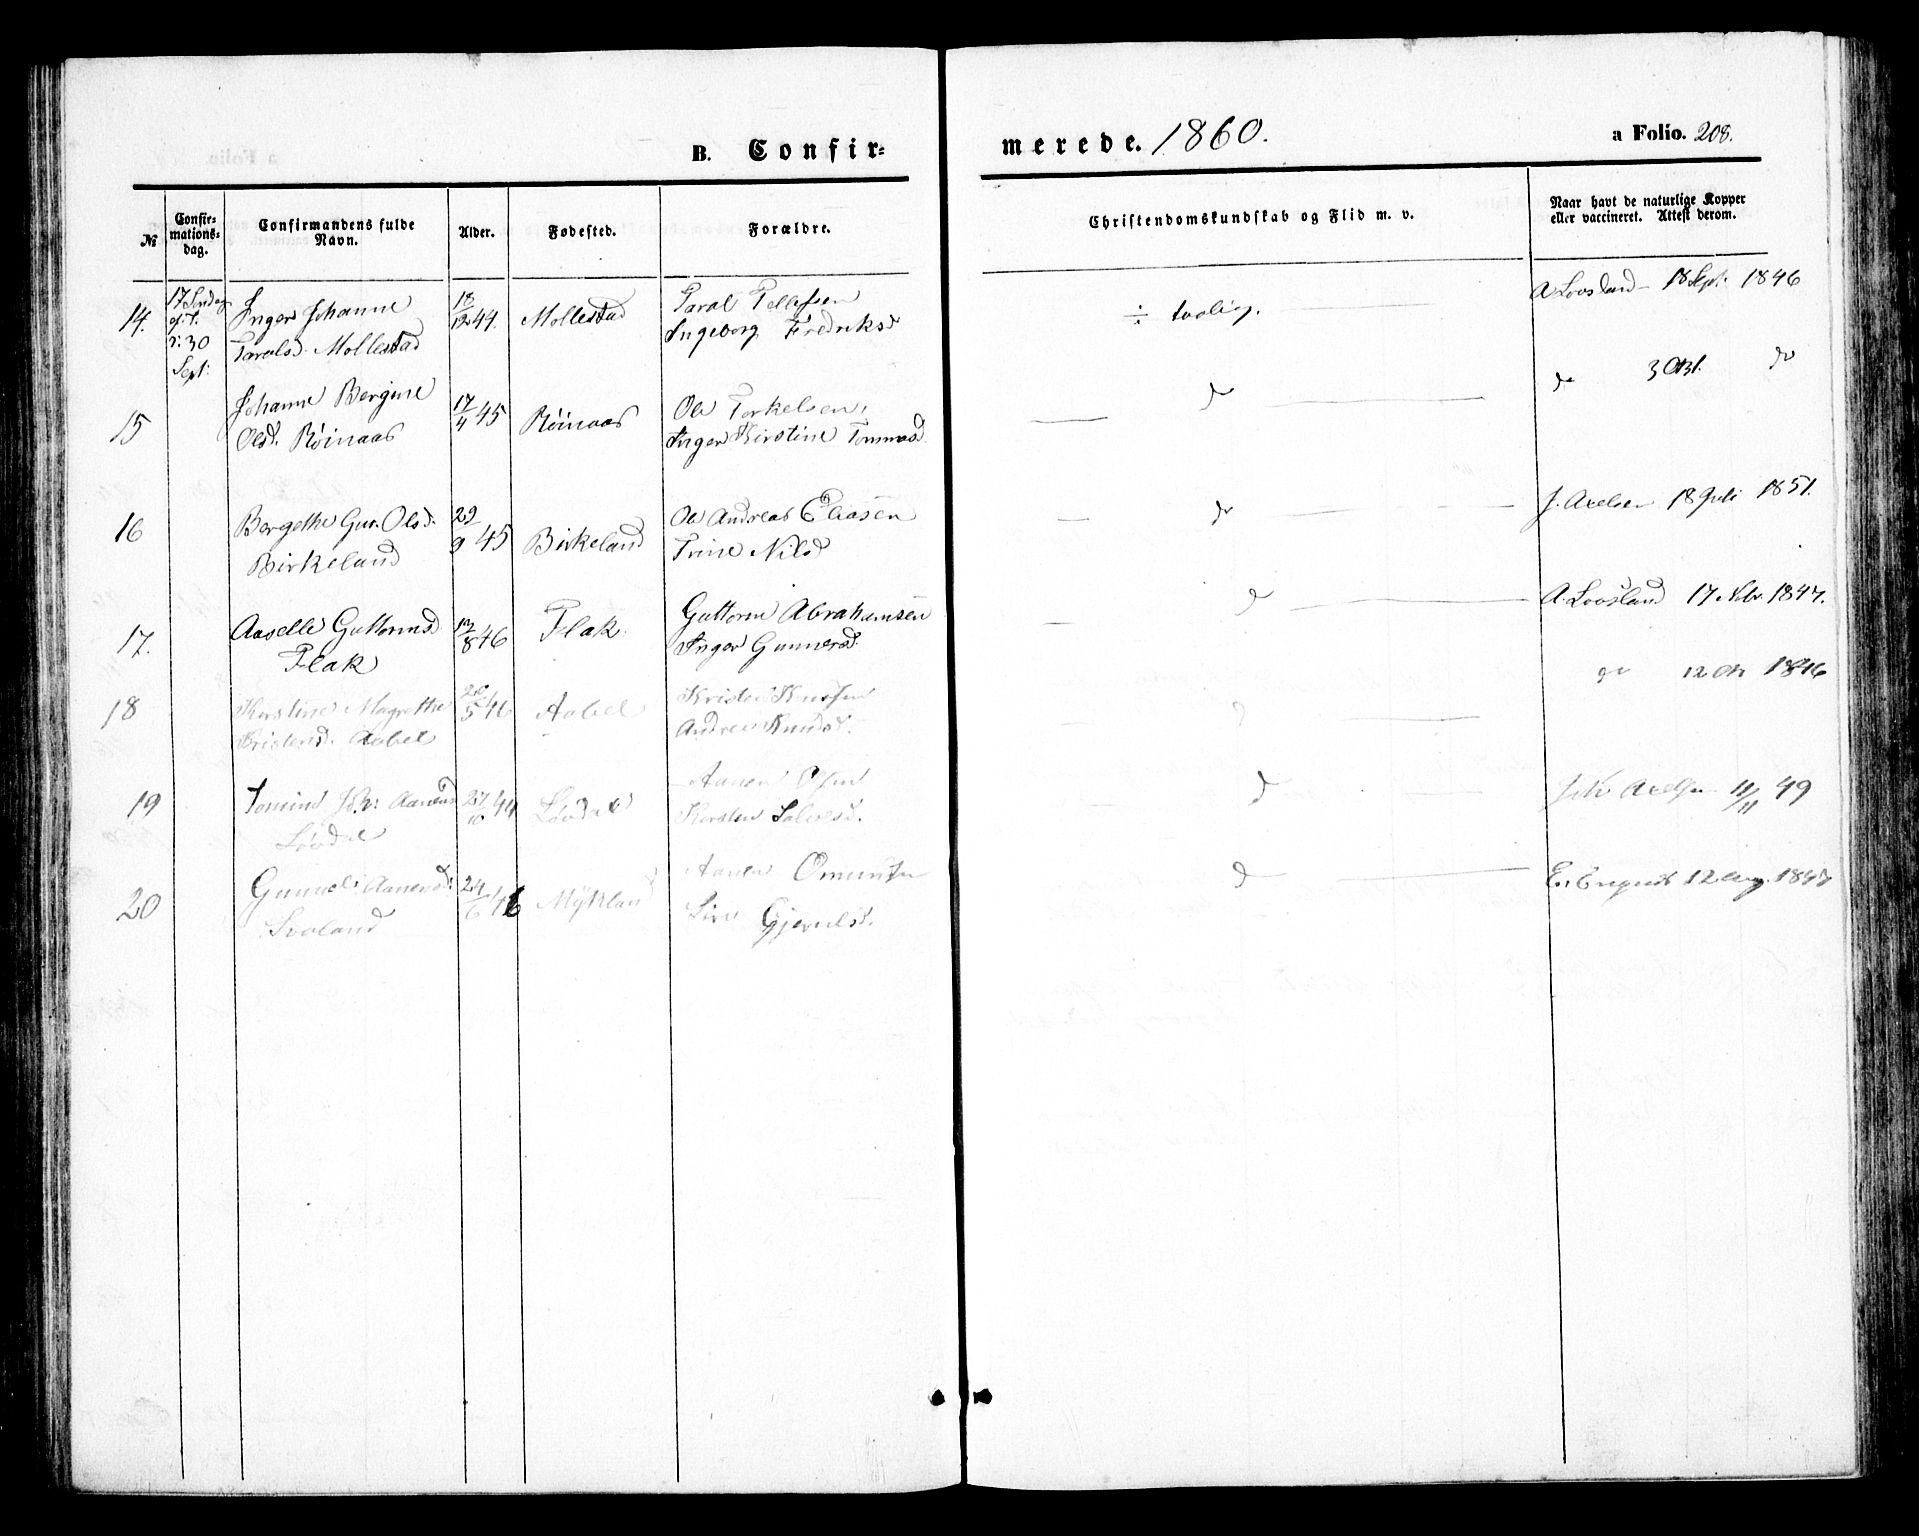 B. Confir-
merede. 1860.
a Folio. 208.
№
Confir-
mations-
dag.
Confirmandens fulde
Navn.
Alder.
Fødested.
Forældre.
Christendomskundskab og Flid m. v.
Naar havt de naturlige Kopper
eller vaccineret. Attest derom.
14.
17 Søndag
ef. T.
30
Sept:
Inger Johanne
Taralsd. Mollestad
18/12 44.
Mollestad
Taral Tellefsen
Ingeborg Fredriksd
÷ taalig.
A Loosland 18 Sept. 1846
15
Johanne Bergine
Olsd. Røinaas
17/4 45
Røinaas
Ole Torkelsen,
Inger Kirstine Tommasd.
do
do 3 Oct. do
16
Bergethe Gur. Olsd.
Birkeland
29/9 45
Birkeland
Ole Andreas Eliasen
Trine Nilsd
do
J. Axelsen 18 Juli 1851.
17.
Aaselle Guttormsd
Flak
12/8 46
Flak.
Guttorm Abrahamsen
Inger Gunnersd.
d
A. Loosland 17 Nbr. 1847.
18
Kirstine Magrethe
Kristensd. Aabel
20/5 46
Aabel
Kristen Knudsen
Andrea Knudsd.
do 12 Okt 1846
19
Tomine Joh: Aanensd
Løvdal
27/10 44
Løvdal
Aanen Olsen
Kirsten Salvesd.
d
Joh Axelsen 11/11 49
20
Gunnel: Aanensd.
Svaland
24/6 46
Mykland
Aanen Omundsen
Siri Gjerulsd.
d
12 Aug. 1847